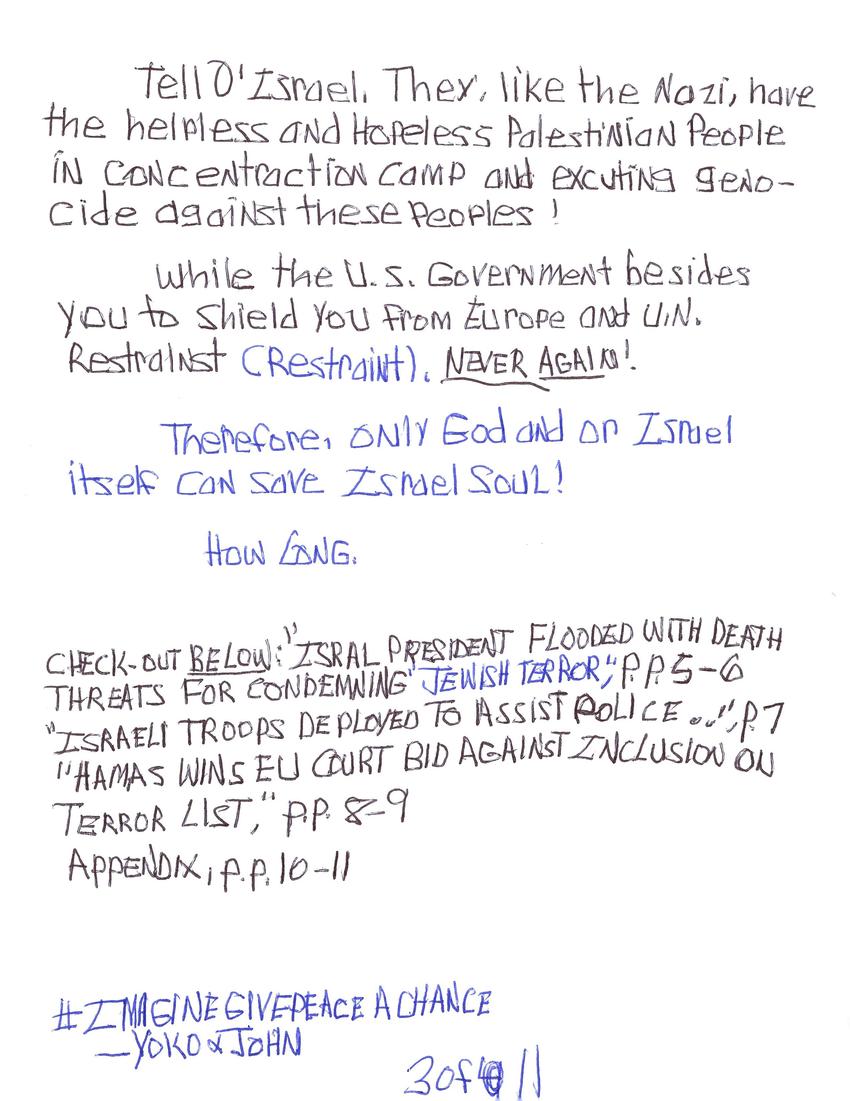 Tell O' Israel. They, like the Nazi, have
the helpless and Hopeless Palestinian People
in concentraction camp and excuting geno-
cide against these Peoples!
While the U.S. Government besides
you to shield you from Europe and U.N.
Restrainst (Restraint). NEVER AGAIN!
Therefore, only God and or Israel
itself can save Israel Soul!
HOW LONG.
CHECK-OUT BELOW: "ISRAL PRESIDENT FLOODED WITH DEATH
THREATS FOR CONDEMNING "JEWISH TERROR," P.P. 5-6
"ISRAELI TROOPS DEPLOYED TO ASSIST POLICE...", P. 7
"HAMAS WINS EU COURT BID AGAINST INCLUSION ON
TERROR LIST," P.P. 8-9
APPENDIX, P.P. 10-11
#IMAGINEGIVEPEACE A CHANCE
—YOKO & JOHN
3 of 11